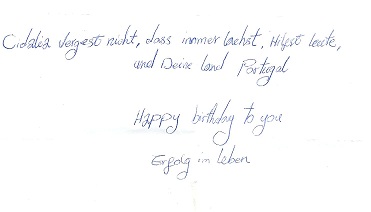 Cidália vergest nicht, dass immer lachst, Hilfst leute,
und Deine land Portugal
Happy birthday to you
Erfolg im leben